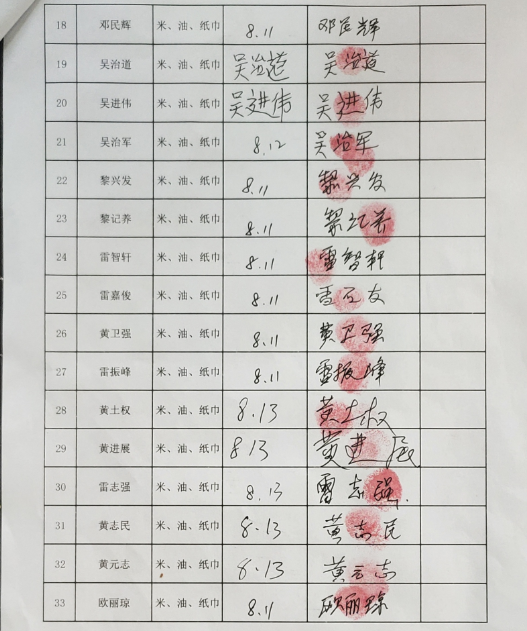 18 邓民辉 米、油、纸巾 8.11 邓民辉
19 吴治道 米、油、纸巾 吴治道 吴治道
20 吴进伟 米、油、纸巾 吴进伟 吴进伟
21 吴治军 米、油、纸巾 8.12 吴治军
22 黎兴发 米、油、纸巾 8.11 黎兴发
23 黎记养 米、油、纸巾 8.11 黎记养
24 雷智轩 米、油、纸巾 8.11 雷智轩
25 雷嘉俊 米、油、纸巾 8.11 雷友
26 黄卫强 米、油、纸巾 8.11 黄卫强
27 雷振峰 米、油、纸巾 8.11 雷振峰
28 黄土权 米、油、纸巾 8.13 黄土权
29 黄进展 米、油、纸巾 8 13 黄进展
30 雷志强 米、油、纸巾 8.13 雷志强.
31 黄志民 米、油、纸巾 8.13 黄志民
32 黄元志 米、油、纸巾 8.13 黄元志
33 欧丽琼 米、油、纸巾 8.11 欧丽琼